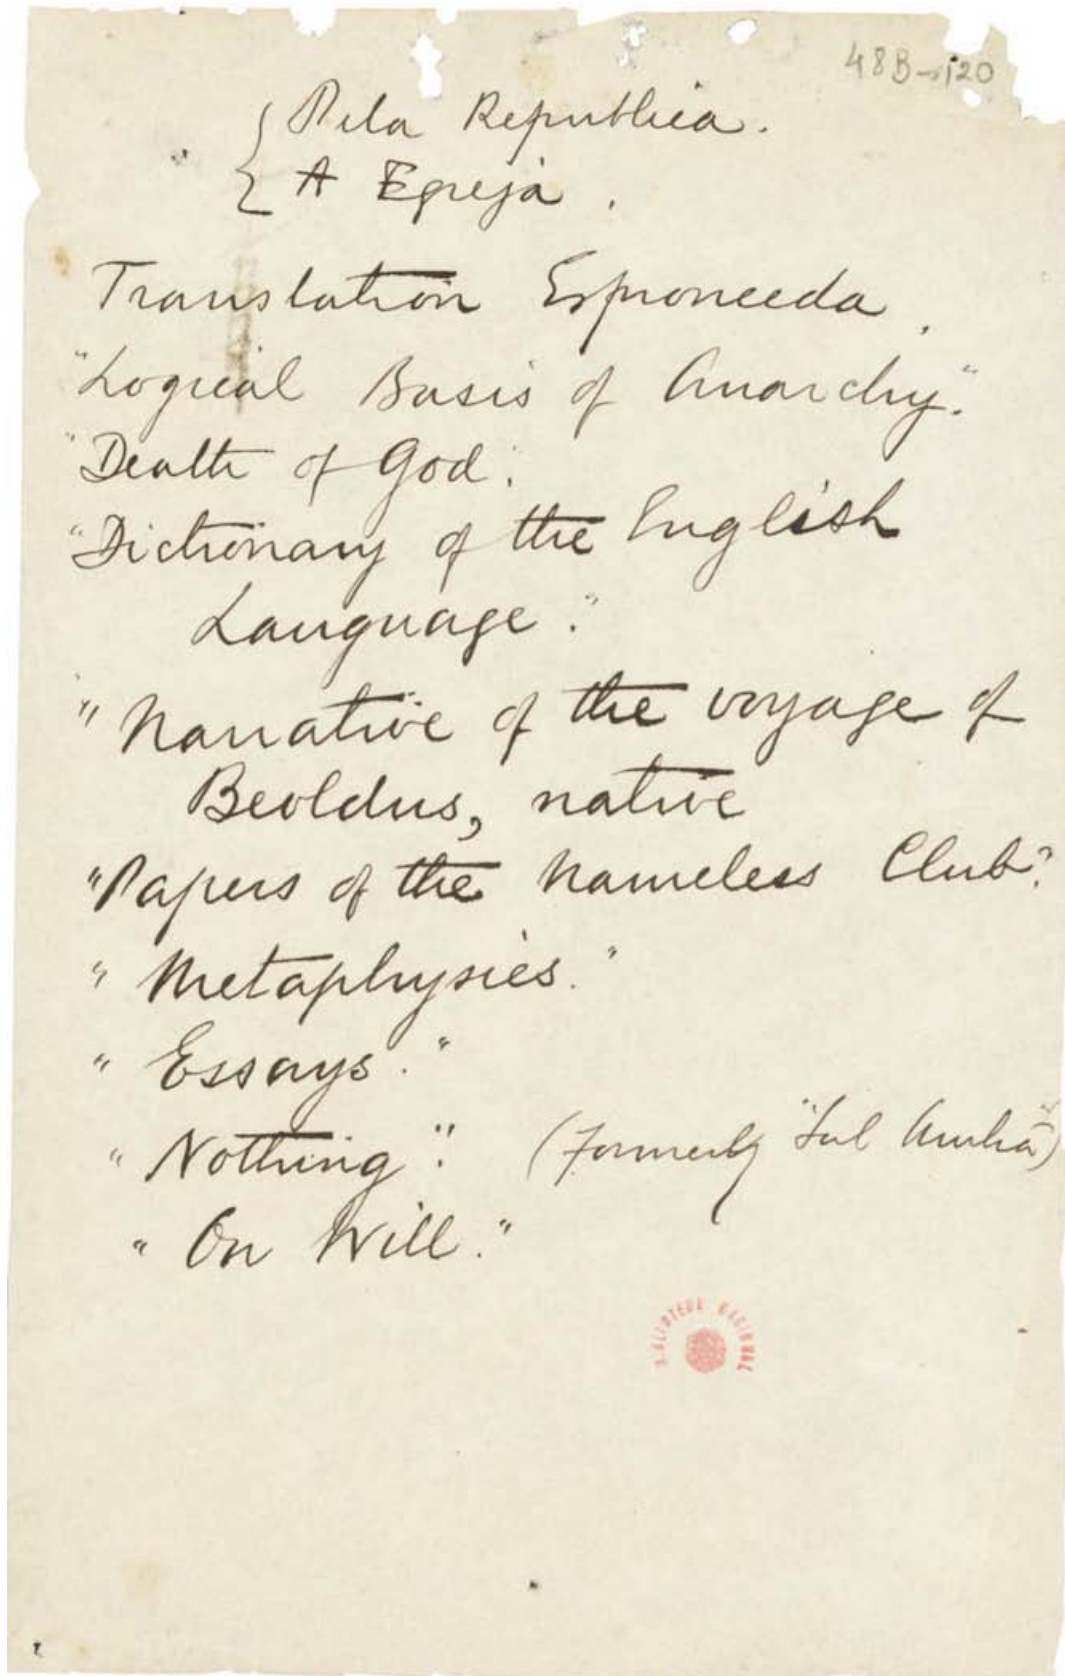 48B-120
Pela Republica.
A Egreja.
Translation Espronceda.
"Logical Basis of Anarchy."
"Death of God."
"Dictionary of the English
Language."
"Narrative of the voyage of
Beoldus, native
"Papers of the Nameless Club."
"Metaphysics."
"Essays."
"Nothing." (formerly
"On Will."
BIBLIOTECA NACIONAL